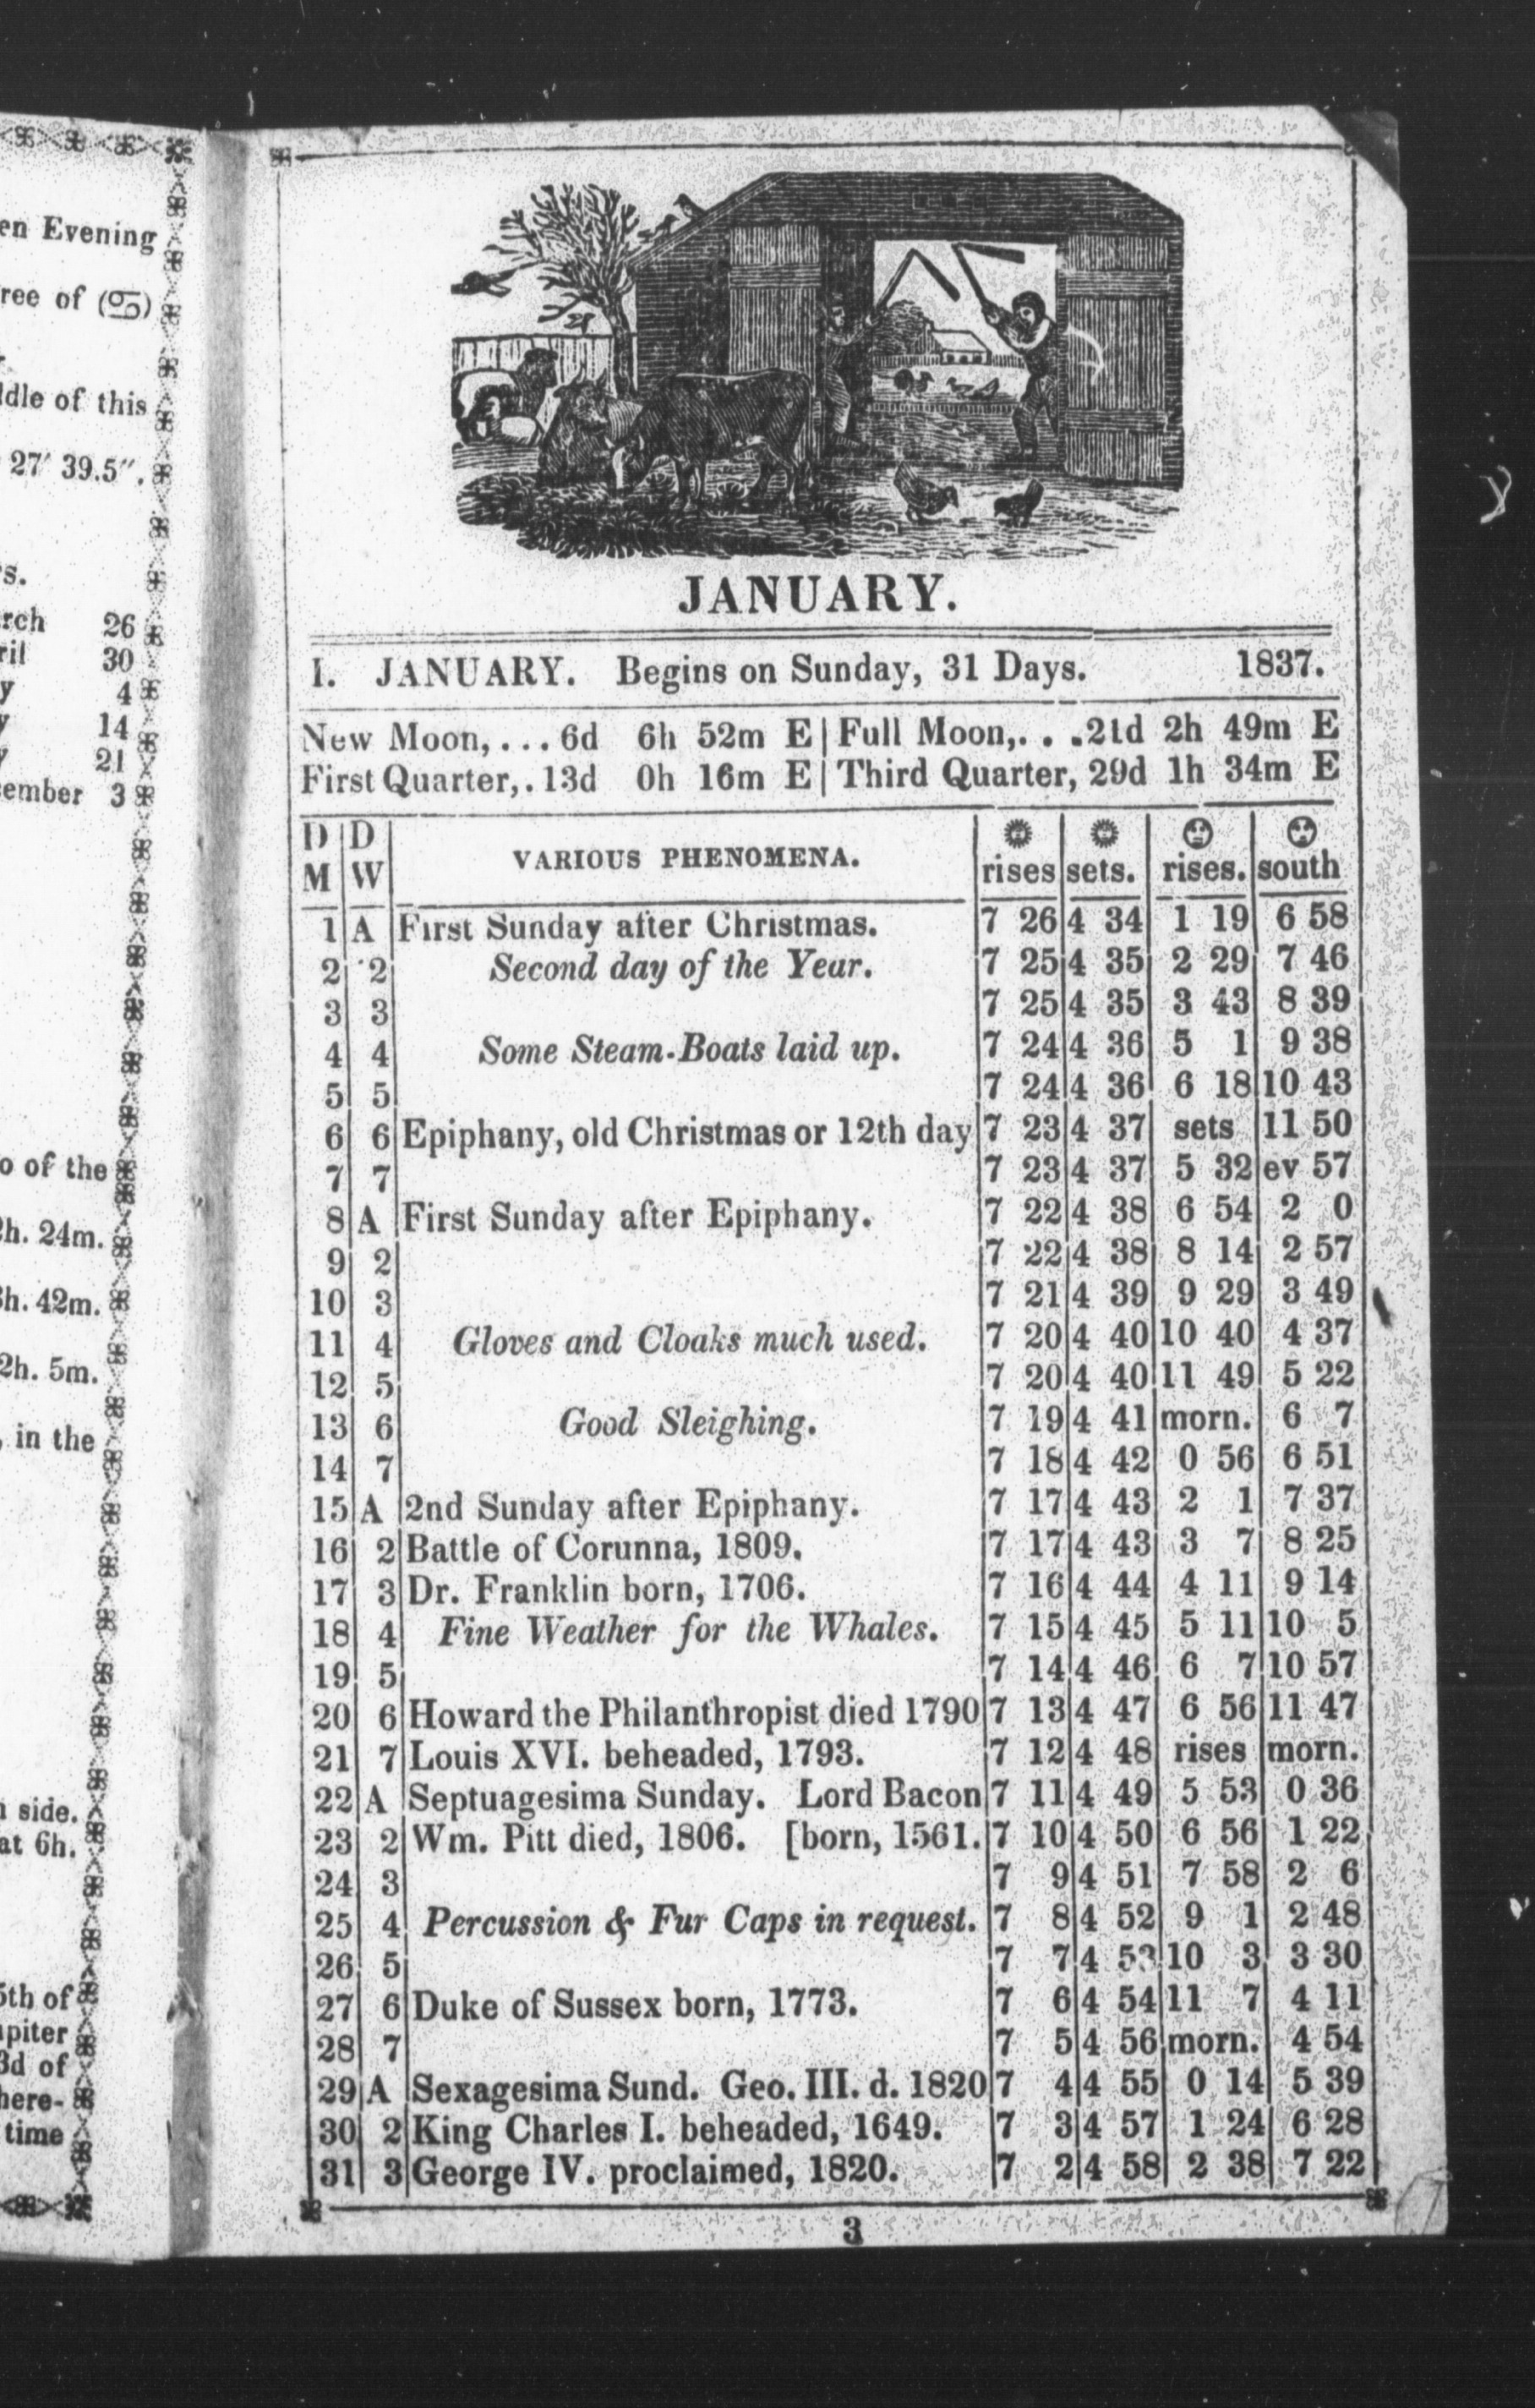 en Evening
ree of (♋)
dle of this
27′ 39.5″.
s.
rch 26
ril 30
y 4
y 14
y 21
ember 3
o of the
h. 24m.
h. 42m.
2h. 5m.
, in the
side.
at 6h.
5th of
piter
3d of
here-
time
JANUARY.
I. JANUARY. Begins on Sunday, 31 Days. 1837.
New Moon,... 6d 6h 52m E | Full Moon,. . .21d 2h 49m E
First Quarter,. 13d 0h 16m E | Third Quarter, 29d 1h 34m E
D M D W VARIOUS PHENOMENA. rises sets. rises. south
1 A First Sunday after Christmas. 7 26 4 34 1 19 6 58
2 2 Second day of the Year. 7 25 4 35 2 29 7 46
3 3 7 25 4 35 3 43 8 39
4 4 Some Steam-Boats laid up. 7 24 4 36 5 1 9 38
5 5 7 24 4 36 6 18 10 43
6 6 Epiphany, old Christmas or 12th day 7 23 4 37 sets 11 50
7 7 7 23 4 37 5 32 ev 57
8 A First Sunday after Epiphany. 7 22 4 38 6 54 2 0
9 2 7 22 4 38 8 14 2 57
10 3 7 21 4 39 9 29 3 49
11 4 Gloves and Cloaks much used. 7 20 4 40 10 40 4 37
12 5 7 20 4 40 11 49 5 22
13 6 Good Sleighing. 7 19 4 41 morn. 6 7
14 7 7 18 4 42 0 56 6 51
15 A 2nd Sunday after Epiphany. 7 17 4 43 2 1 7 37
16 2 Battle of Corunna, 1809. 7 17 4 43 3 7 8 25
17 3 Dr. Franklin born, 1706. 7 16 4 44 4 11 9 14
18 4 Fine Weather for the Whales. 7 15 4 45 5 11 10 5
19 5 7 14 4 46 6 7 10 57
20 6 Howard the Philanthropist died 1790 7 13 4 47 6 56 11 47
21 7 Louis XVI. beheaded, 1793. 7 12 4 48 rises morn.
22 A Septuagesima Sunday. Lord Bacon 7 11 4 49 5 53 0 36
23 2 Wm. Pitt died, 1806. [born, 1561. 7 10 4 50 6 56 1 22
24 3 7 9 4 51 7 58 2 6
25 4 Percussion & Fur Caps in request. 7 8 4 52 9 1 2 48
26 5 7 7 4 53 10 3 3 30
27 6 Duke of Sussex born, 1773. 7 6 4 54 11 7 4 11
28 7 7 5 4 56 morn. 4 54
29 A Sexagesima Sund. Geo. III. d. 1820 7 4 4 55 0 14 5 39
30 2 King Charles I. beheaded, 1649. 7 3 4 57 1 24 6 28
31 3 George IV. proclaimed, 1820. 7 2 4 58 2 38 7 22
3